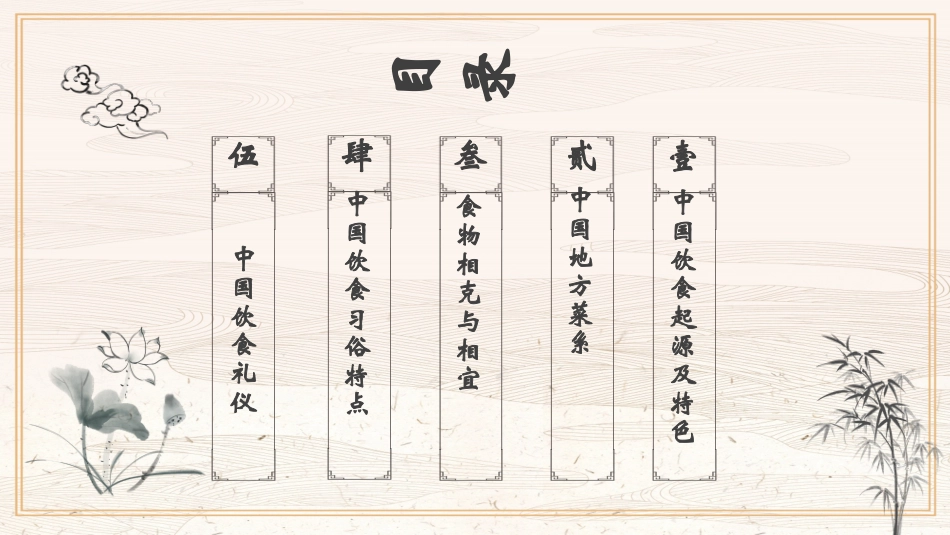 目录
壹
中国饮食起源及特色
贰
中国地方菜系
叁
食物相克与相宜
肆
中国饮食习俗特点
伍
中国饮食礼仪